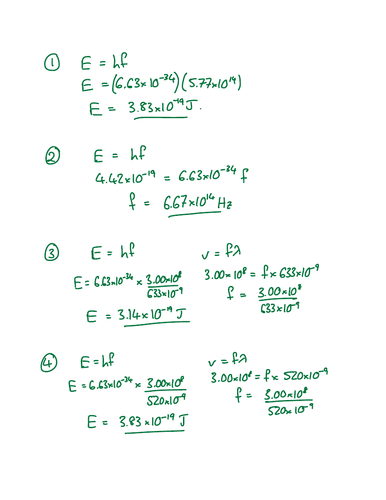 ① E = hf
E = (6.63×10⁻³⁴)(5.77×10¹⁴)
E = 3.83×10⁻¹⁹ J.
② E = hf
4.42×10⁻¹⁹ = 6.63×10⁻³⁴ f
f = 6.67×10¹⁴ Hz
③ E = hf
E = 6.63×10⁻³⁴ × 3.00×10⁸ / 633×10⁻⁹
E = 3.14×10⁻¹⁹ J
v = fλ
3.00×10⁸ = f × 633×10⁻⁹
f = 3.00×10⁸ / 633×10⁻⁹
④ E = hf
E = 6.63×10⁻³⁴ × 3.00×10⁸ / 520×10⁻⁹
E = 3.83×10⁻¹⁹ J
v = fλ
3.00×10⁸ = f × 520×10⁻⁹
f = 3.00×10⁸ / 520×10⁻⁹